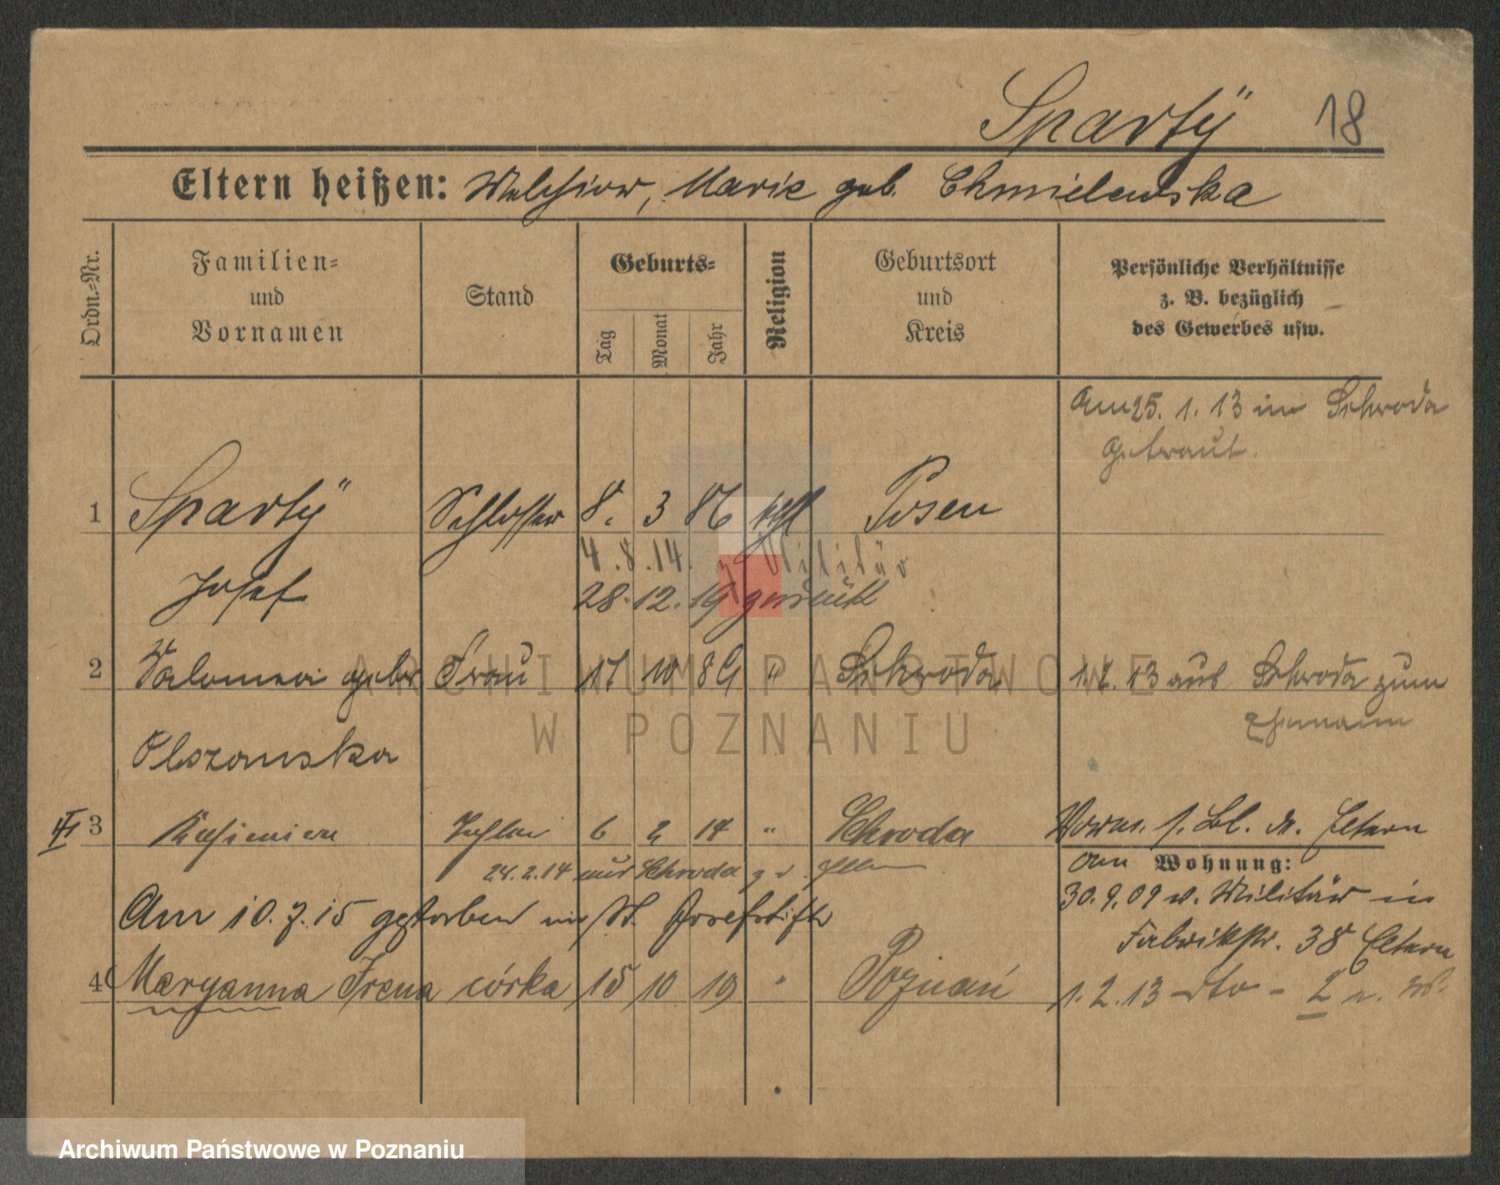 Sparty 18
Eltern heißen: Melchior, Marie geb. Chmielewska
Ordn.-Nr.
Familien-
und
Vornamen
Stand
Geburts-
Tag
Monat
Jahr
Religion
Geburtsort
und
Kreis
Persönliche Verhältnisse
z. B. bezüglich
des Gewerbes usw.
Am 25. 1. 13 in Schroda
getraut.
1 Sparty Schlosser 8. 3 86 kth Posen
4. 8. 14. z. Militär
Josef 28. 12. 19 zurück
2 Salomea geb. Frau 17 10 89 " Schroda 13 aus Schroda zum
Olszanska Ehemann
3 Kasimira Tochter 6 2 14 " Schroda Vorm. s. Bl. d. Eltern
24.2.14 aus Schroda
Am Wohnung:
30.9.09 v. Militär in
Am 10. 7. 15 gestorben im St. Josefstift
Fabrikstr. 38 Eltern
4 Maryanna Irena córka 15 10 19 " Poznań 1. 2. 13 - dto - 2
ARCHIWUM PAŃSTWOWE
W POZNANIU
Archiwum Państwowe w Poznaniu